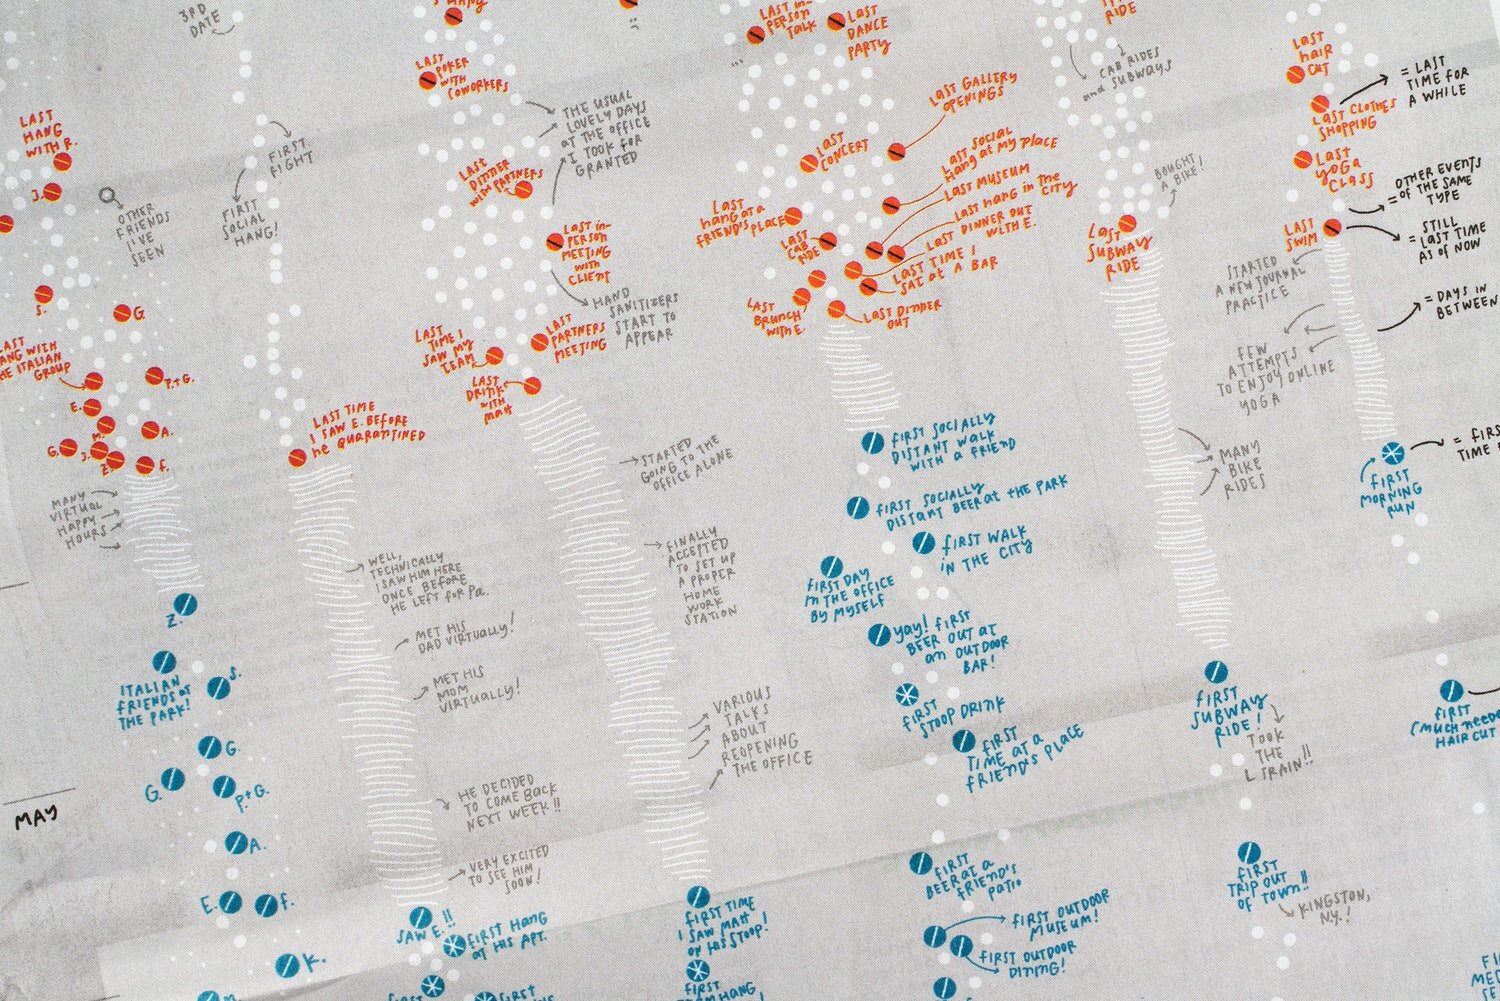 3RD
DATE
LAST
HANG
WITH R.
J.
OTHER
FRIENDS
I'VE
SEEN
S.
G.
LAST
HANG WITH
THE ITALIAN
GROUP
P.+G.
E.
M.
A.
G.
J.
Z.
F.
MANY
VIRTUAL
HAPPY
HOURS
Z.
ITALIAN
FRIENDS AT
THE PARK!
S.
G.
G.
P.+G.
MAY
A.
E.
F.
K.
FIRST
FIGHT
FIRST
SOCIAL
HANG!
LAST TIME
I SAW E. BEFORE
HE QUARANTINED
WELL,
TECHNICALLY
I SAW HIM HERE
ONCE BEFORE
HE LEFT FOR PA.
MET HIS
DAD VIRTUALLY!
MET HIS
MOM
VIRTUALLY!
HE DECIDED
TO COME BACK
NEXT WEEK!!
VERY EXCITED
TO SEE HIM
SOON!
SAW E.!!
FIRST HANG
AT HIS APT.
FIRST
LAST
POKER
WITH
COWORKERS
THE USUAL
LOVELY DAYS
AT THE OFFICE
I TOOK FOR
GRANTED
LAST
DINNER
WITH PARTNERS
LAST IN-
PERSON
MEETING
WITH
CLIENT
HAND
SANITIZERS
START TO
APPEAR
LAST
TIME I
SAW MY
TEAM
LAST
PARTNERS
MEETING
LAST
DRINK
WITH
MATT
STARTED
GOING TO THE
OFFICE ALONE
FINALLY
ACCEPTED
TO SET UP
A PROPER
HOME
WORK
STATION
VARIOUS
TALKS
ABOUT
REOPENING
THE OFFICE
FIRST TIME
I SAW MATT
ON HIS STOOP!
FIRST
TEAM HANG
LAST IN-
PERSON
TALK
LAST
DANCE
PARTY
LAST GALLERY
OPENINGS
LAST
CONCERT
LAST SOCIAL
HANG AT MY PLACE
LAST MUSEUM
LAST HANG IN THE
CITY
LAST DINNER OUT
WITH E.
LAST TIME I
SAT AT A BAR
LAST
HANG AT A
FRIEND'S PLACE
LAST
CAB
RIDE
LAST
BRUNCH
WITH E.
LAST DINNER
OUT
FIRST SOCIALLY
DISTANT WALK
WITH A FRIEND
FIRST SOCIALLY
DISTANT BEER AT THE PARK
FIRST WALK
IN THE CITY
FIRST DAY
IN THE OFFICE
BY MYSELF
YAY! FIRST
BEER OUT AT
AN OUTDOOR
BAR!
FIRST
STOOP DRINK
FIRST
TIME AT A
FRIEND'S PLACE
FIRST
BEER AT A
FRIEND'S
PATIO
FIRST OUTDOOR
MUSEUM!
FIRST OUTDOOR
DINING!
RIDE
CAB RIDES
AND SUBWAYS
BOUGHT
A BIKE!
LAST
SUBWAY
RIDE
MANY
BIKE
RIDES
FIRST
SUBWAY
RIDE!
TOOK
THE
L TRAIN!!
FIRST
TRIP OUT
OF TOWN!!
KINGSTON,
NY.!
LAST
HAIR
CUT
LAST CLOTHES
SHOPPING
= LAST
TIME FOR
A WHILE
LAST
YOGA
CLASS
= OTHER EVENTS
OF THE SAME
TYPE
LAST
SWIM
= STILL
LAST TIME
AS OF NOW
STARTED
A NEW JOURNAL
PRACTICE
= DAYS IN
BETWEEN
FEW
ATTEMPTS
TO ENJOY ONLINE
YOGA
FIRST
MORNING
RUN
= FIRS
TIME
FIRST
(MUCH NEEDE
HAIRCUT